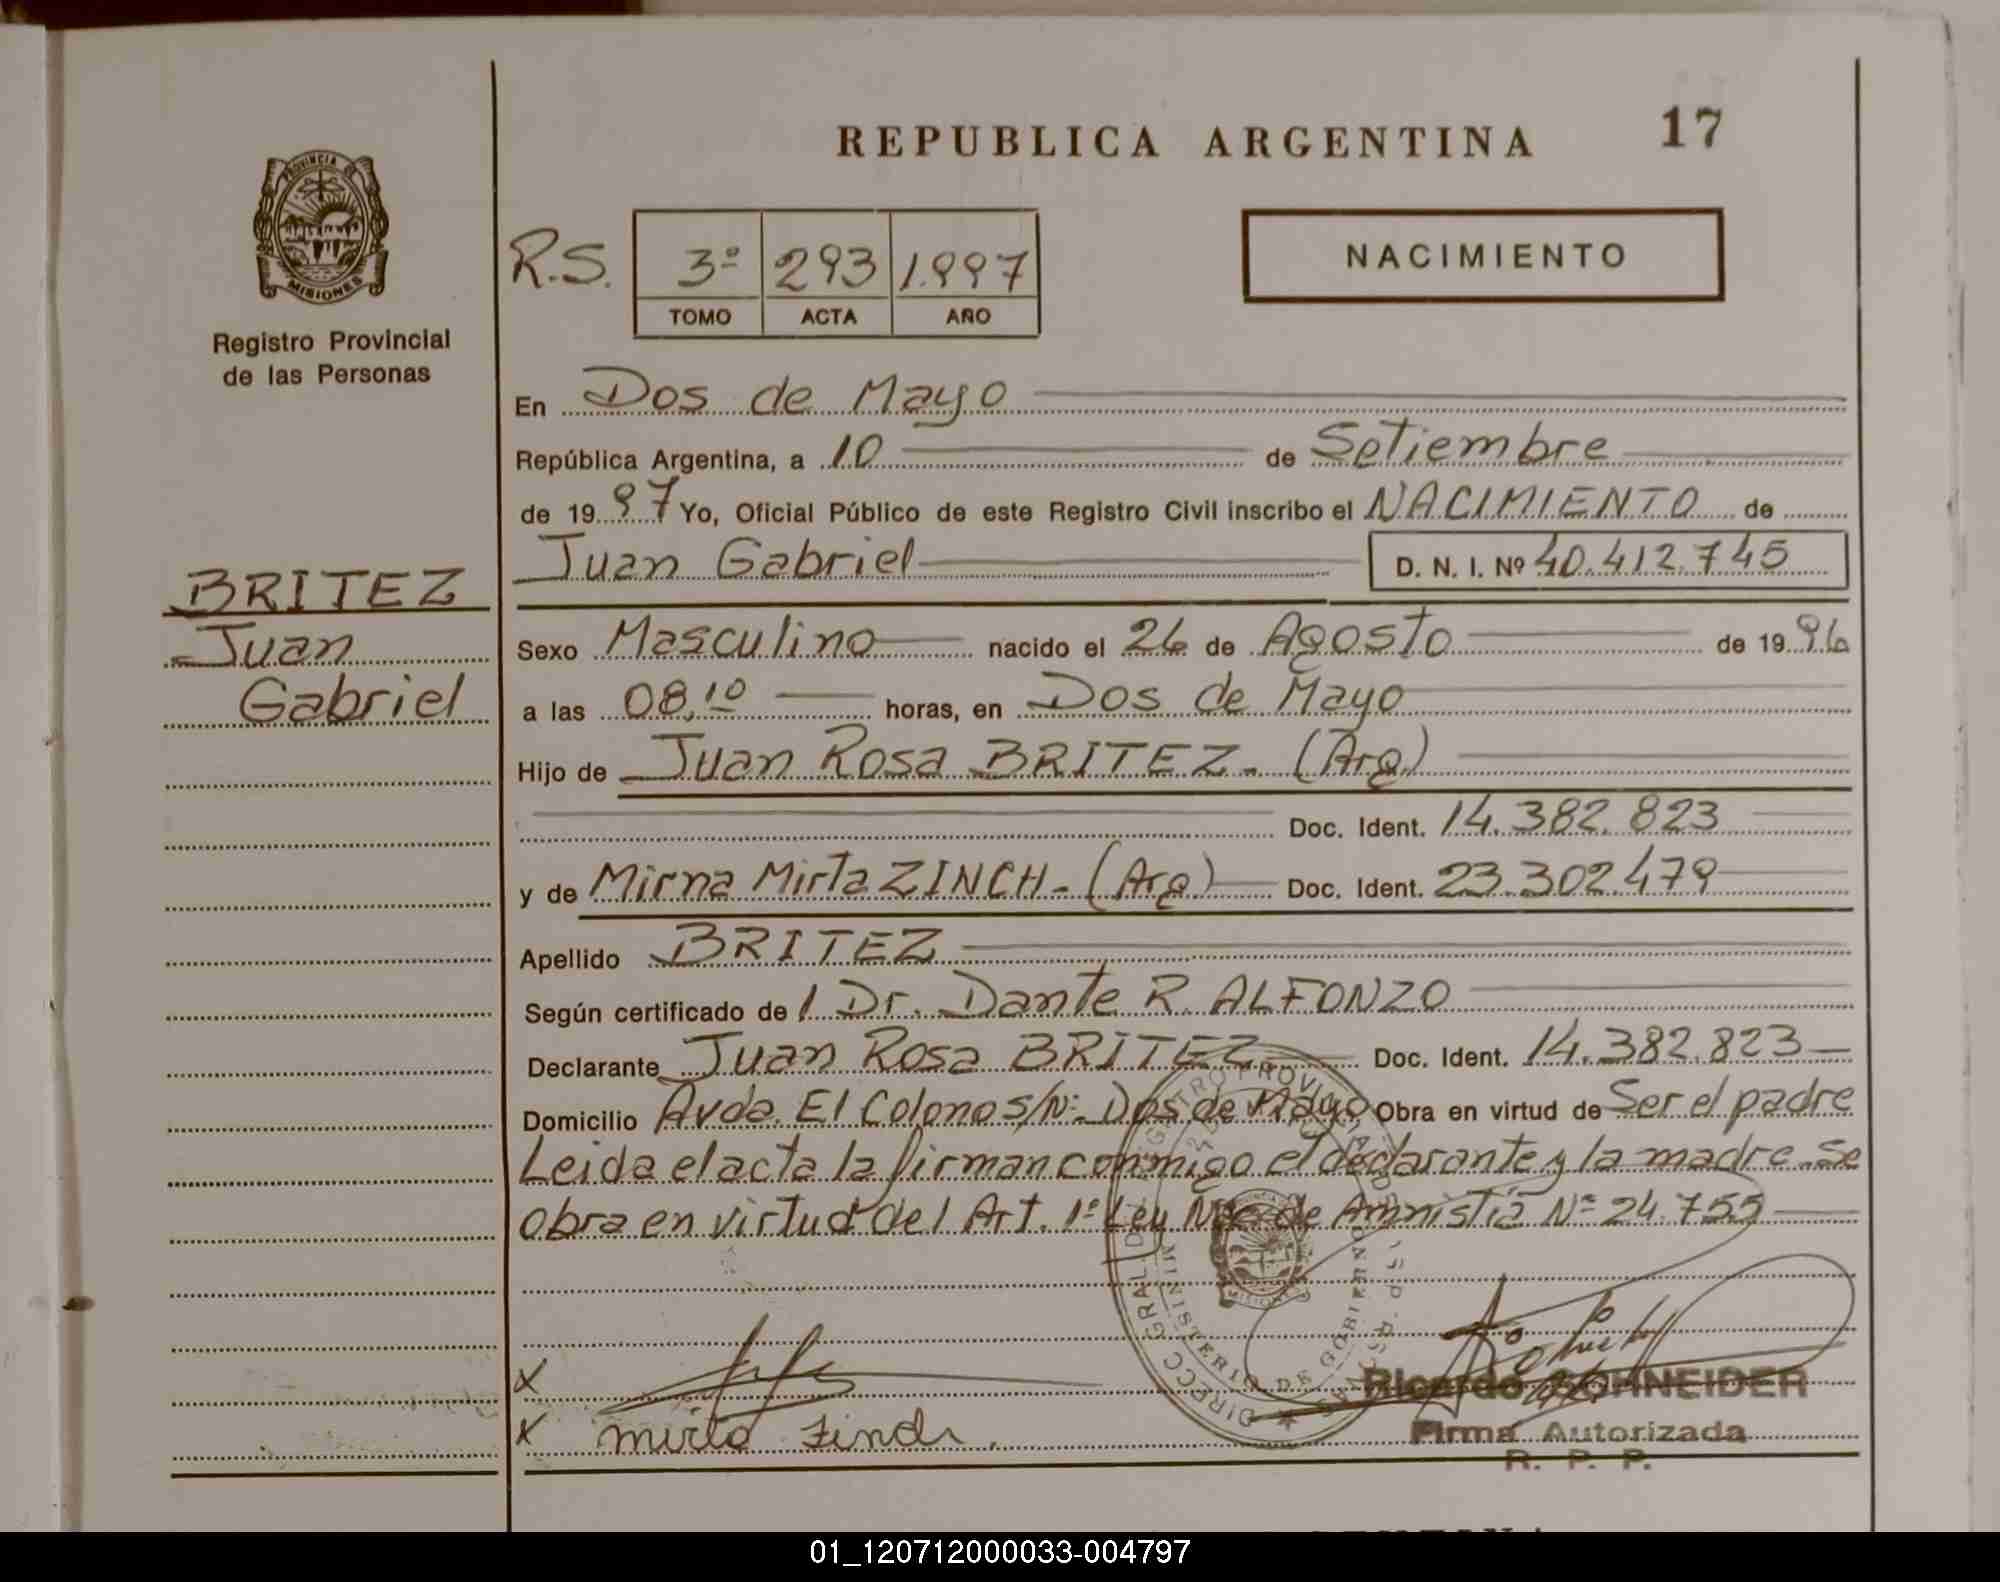 REPUBLICA ARGENTINA 17
PROVINCIA DE
MISIONES
Registro Provincial
de las Personas
R.S. 3º 293 1.997
TOMO ACTA AÑO
NACIMIENTO
En Dos de Mayo
República Argentina, a 10 de Setiembre
de 1997 Yo, Oficial Público de este Registro Civil inscribo el NACIMIENTO de
Juan Gabriel D. N. I. Nº 40.412.745
BRITEZ
Juan
Gabriel
Sexo Masculino nacido el 26 de Agosto de 1996
a las 08,10 horas, en Dos de Mayo
Hijo de Juan Rosa BRITEZ - (Arg)
Doc. Ident. 14.382.823
y de Mirna Mirta ZINCH - (Arg) Doc. Ident. 23.302.479
Apellido BRITEZ
Según certificado de l Dr. Dante R. ALFONZO
Declarante Juan Rosa BRITEZ Doc. Ident. 14.382.823
Domicilio Avda. El Colono S/Nº Dos de Mayo Obra en virtud de Ser el padre
Leida el acta la firman conmigo el declarante y la madre. Se
obra en virtud del Art. 1º Ley Nac de Amnistia Nº 24.755
X
X Mirta Zinch.
MINISTERIO DE GOBIERNO
MISIONES
Ricardo SCHNEIDER
Firma Autorizada
R. P. P.
01_120712000033-004797